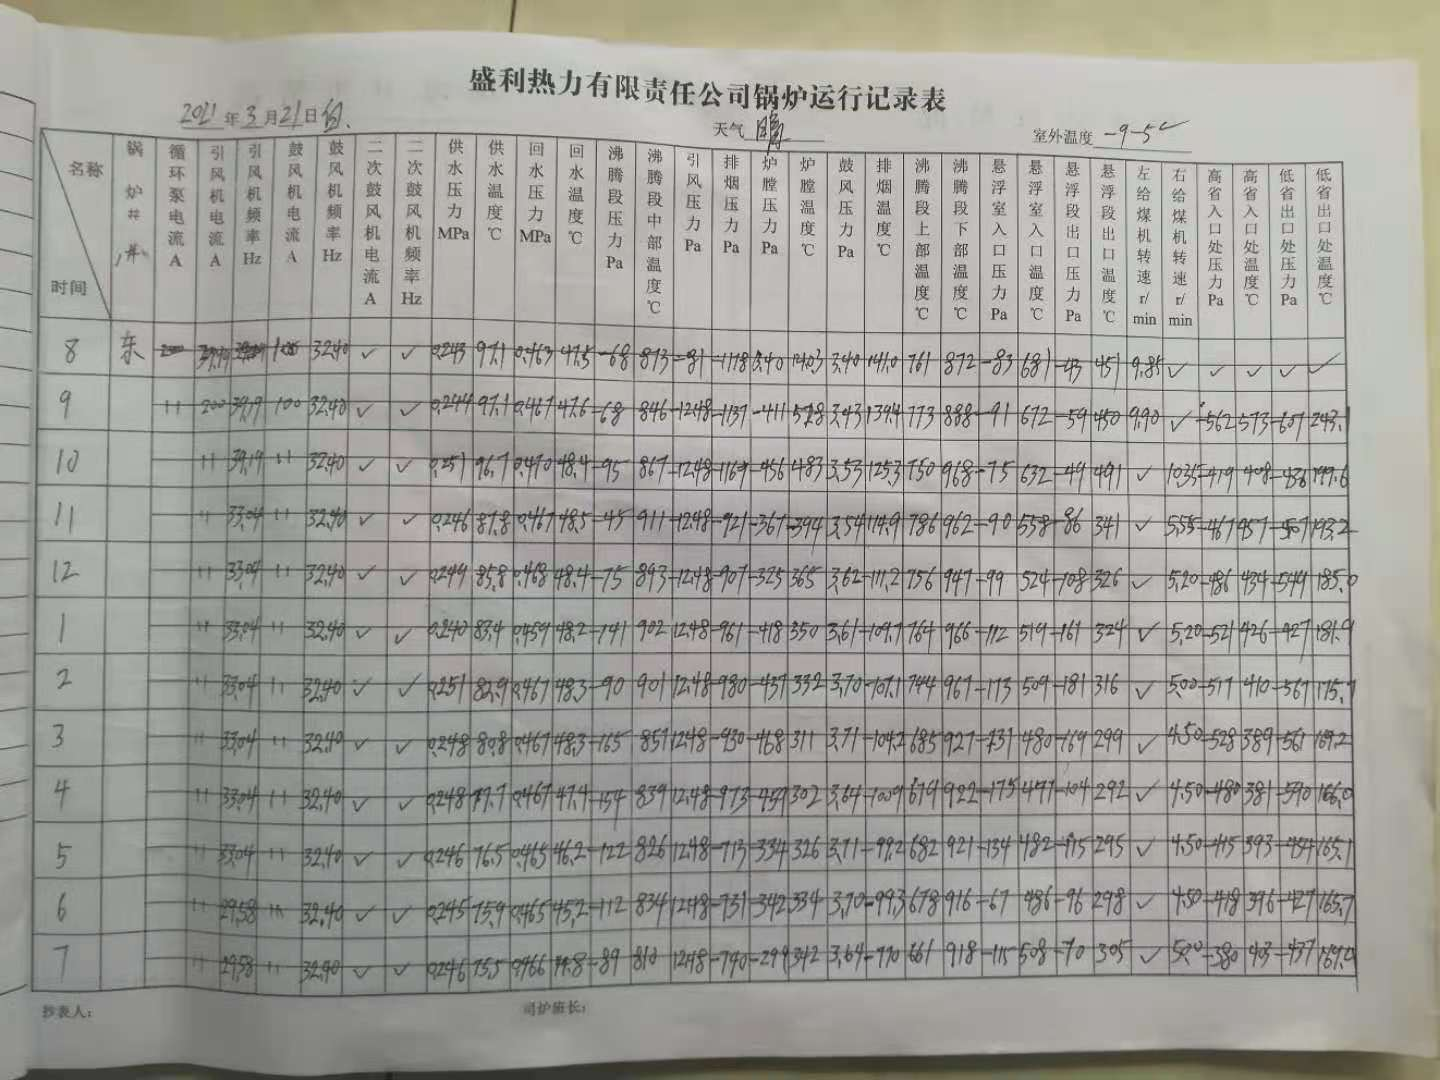 盛利热力有限责任公司锅炉运行记录表
2021年3月21日 白 天气 晴 室外温度 -9-5℃
名称 时间 锅炉# 循环泵电流A 引风机电流A 引风机频率Hz 鼓风机电流A 鼓风机频率Hz 二次鼓风机电流A 二次鼓风机频率Hz 供水压力MPa 供水温度℃ 回水压力MPa 回水温度℃ 沸腾段压力Pa 沸腾段中部温度℃ 引风压力Pa 排烟压力Pa 炉膛压力Pa 炉膛温度℃ 鼓风压力Pa 排烟温度℃ 沸腾段上部温度℃ 沸腾段下部温度℃ 悬浮室入口压力Pa 悬浮室入口温度℃ 悬浮段出口压力Pa 悬浮段出口温度℃ 左给煤机转速r/min 右给煤机转速r/min 高省入口处压力Pa 高省入口处温度℃ 低省出口处压力Pa 低省出口处温度℃
8 东 32.40 ✓ ✓ 0.243 97.1 0.463 47.5 -68 873 -81 -1178 1403 3.40 141.0 761 872 -83 681 -43 451 9.85 ✓ ✓ ✓ ✓ ✓
9 11 200 39.19 100 32.40 ✓ ✓ 0.244 97.1 0.467 47.6 -68 846 -12.48 -1137 -411 528 3.43 139.4 773 888 -91 672 -59 450 9.90 ✓ -562 573 -607 243.1
10 11 39.19 11 32.40 ✓ ✓ 0.251 96.7 0.470 48.4 -95 867 -12.48 -1169 -456 483 3.53 125.3 750 968 -75 632 -49 491 ✓ 10.35 -419 408 -436 199.6
11 11 33.04 11 32.40 ✓ ✓ 0.246 87.8 0.467 48.5 -45 911 -12.48 -921 -367 394 3.54 114.9 786 962 -90 558 -86 341 ✓ 5.55 -467 457 193.2
12 11 33.04 11 32.40 ✓ ✓ 0.249 85.8 0.468 48.4 -75 893 -12.48 -907 -325 365 3.62 111.2 756 947 -99 524 -108 326 ✓ 5.20 -486 434 -544 185.0
1 11 33.04 11 32.40 ✓ ✓ 0.240 83.4 0.459 48.2 -141 902 12.48 -961 -418 350 3.61 109.7 764 966 -112 519 -161 324 ✓ 5.20 -521 426 181.9
2 11 33.04 11 32.40 ✓ ✓ 0.251 82.9 0.467 48.3 -90 901 12.48 -980 -437 332 3.70 107.1 744 967 -173 509 -181 316 ✓ 5.00 -517 410 -567 175.7
3 11 33.04 11 32.40 ✓ ✓ 0.248 80.8 0.467 48.3 -165 857 12.48 -930 -468 311 3.71 104.2 685 927 -131 480 -169 299 ✓ 4.50 -528 389 -561 169.2
4 11 33.04 11 32.40 ✓ ✓ 0.248 77.7 0.467 47.4 -154 839 12.48 -973 302 3.64 679 922 -175 477 -104 292 ✓ 4.50 -480 381 -590 166.0
5 11 33.04 11 32.40 ✓ ✓ 0.246 76.5 0.465 46.2 -122 826 12.48 -713 -334 326 3.71 99.2 682 921 -134 482 -115 295 ✓ 4.50 -415 393 165.1
6 11 29.58 11 32.40 ✓ ✓ 0.245 75.9 0.465 45.2 -112 834 12.48 -731 -342 334 3.70 99.3 678 916 -67 486 -96 298 ✓ 4.50 -418 396 -427 165.7
7 11 29.58 32.40 ✓ ✓ 0.246 75.5 0.466 44.8 -89 810 12.48 -740 -299 342 3.64 661 918 -115 508 -70 305 ✓ 5.00 -380 403 -437
抄表人: 司炉班长: